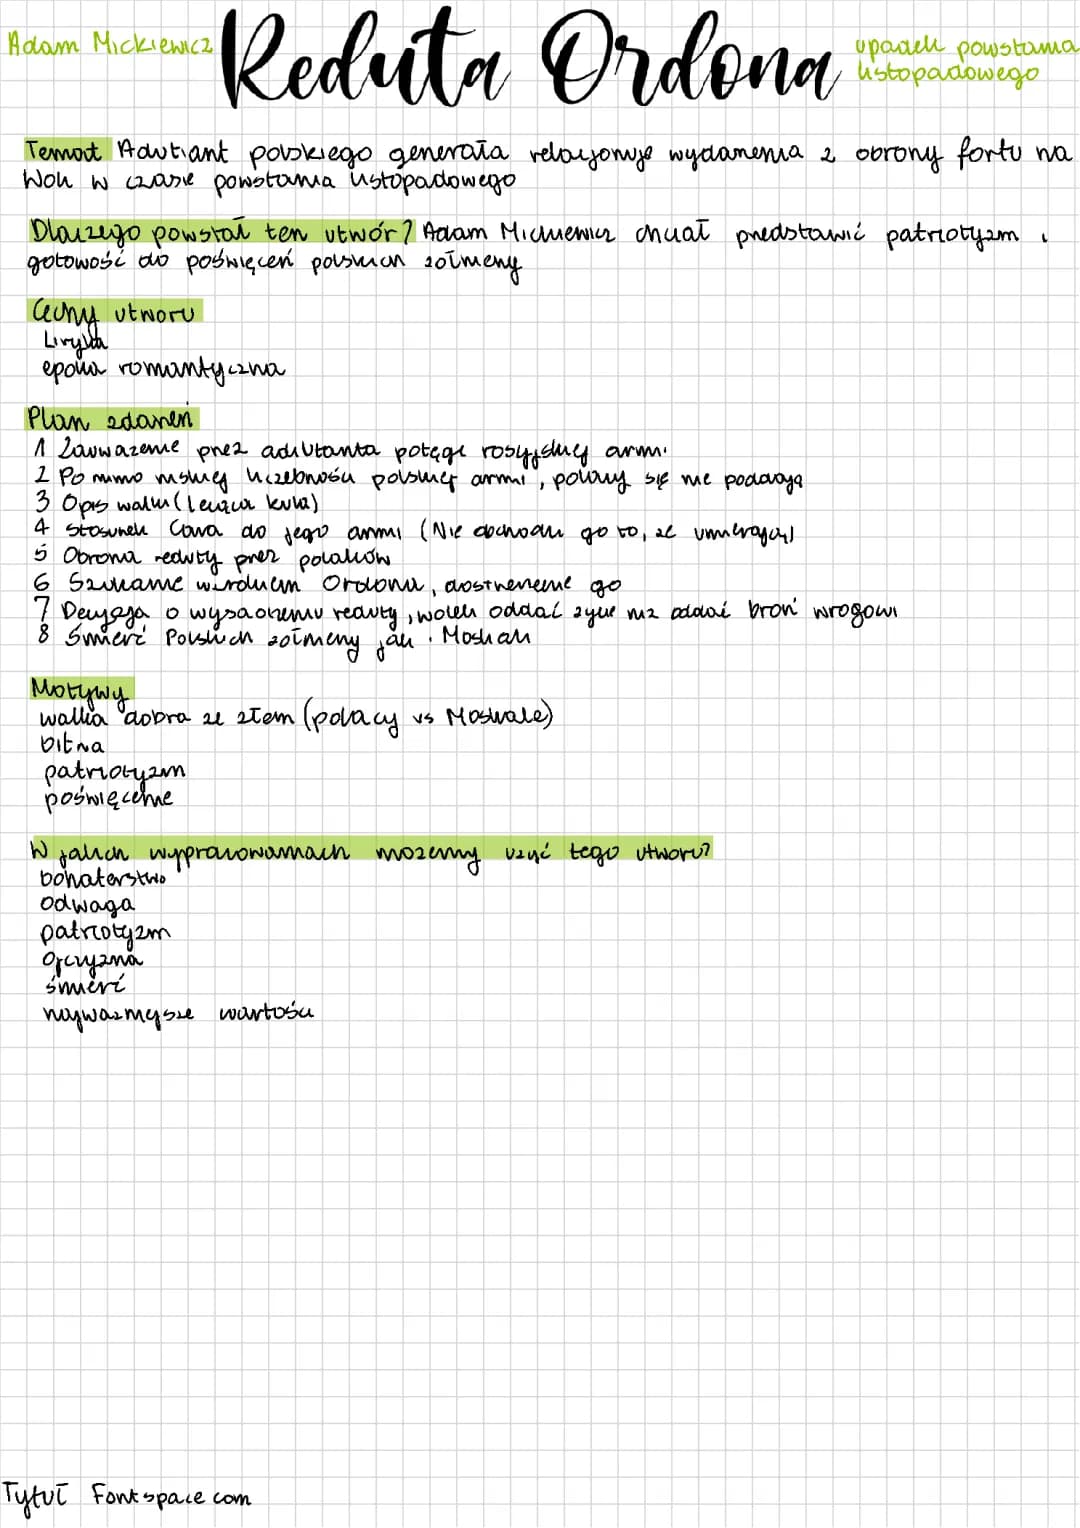 Adam Mickiewicz
Reduta Ordona
upadek powstania
listopadowego
Temat Adiutant polskiego generała relacjonuje wydarzenia z obrony fortu na
Woli w czasie powstania listopadowego
Dlaczego powstał ten utwór? Adam Mickiewicz chciał przedstawić patriotyzm i
gotowość do poświęceń polskich żołnierzy
Cechy utworu
Liryka
epoka romantyczna
Plan zdarzeń
1 Zauważenie przez adiutanta potęgi rosyjskiej armi
2 Po mimo niskiej liczebności polskiej armi, polacy się nie poddają
3 Opis walki (lecąca kula)
4 Stosunek Cara do jego armi (Nie obchodzi go to, że umierają)
5 Obrona reduty przez polaków
6 Szukanie wzrokiem Ordona, dostrzeżenie go
7 Decyzja o wysadzeniu reduty, woleli oddać życie niż oddać broń wrogowi
8 Śmierć Polskich żołnierzy jak i Moskali
Motywy
walka dobra ze złem (polacy vs Moskale)
bitwa
patriotyzm
poświęcenie
W jakich wypracowaniach możemy użyć tego utworu?
bohaterstwo
odwaga
patriotyzm
ojczyzna
śmierć
najważniejsze wartości
Tytuł Fontspace com